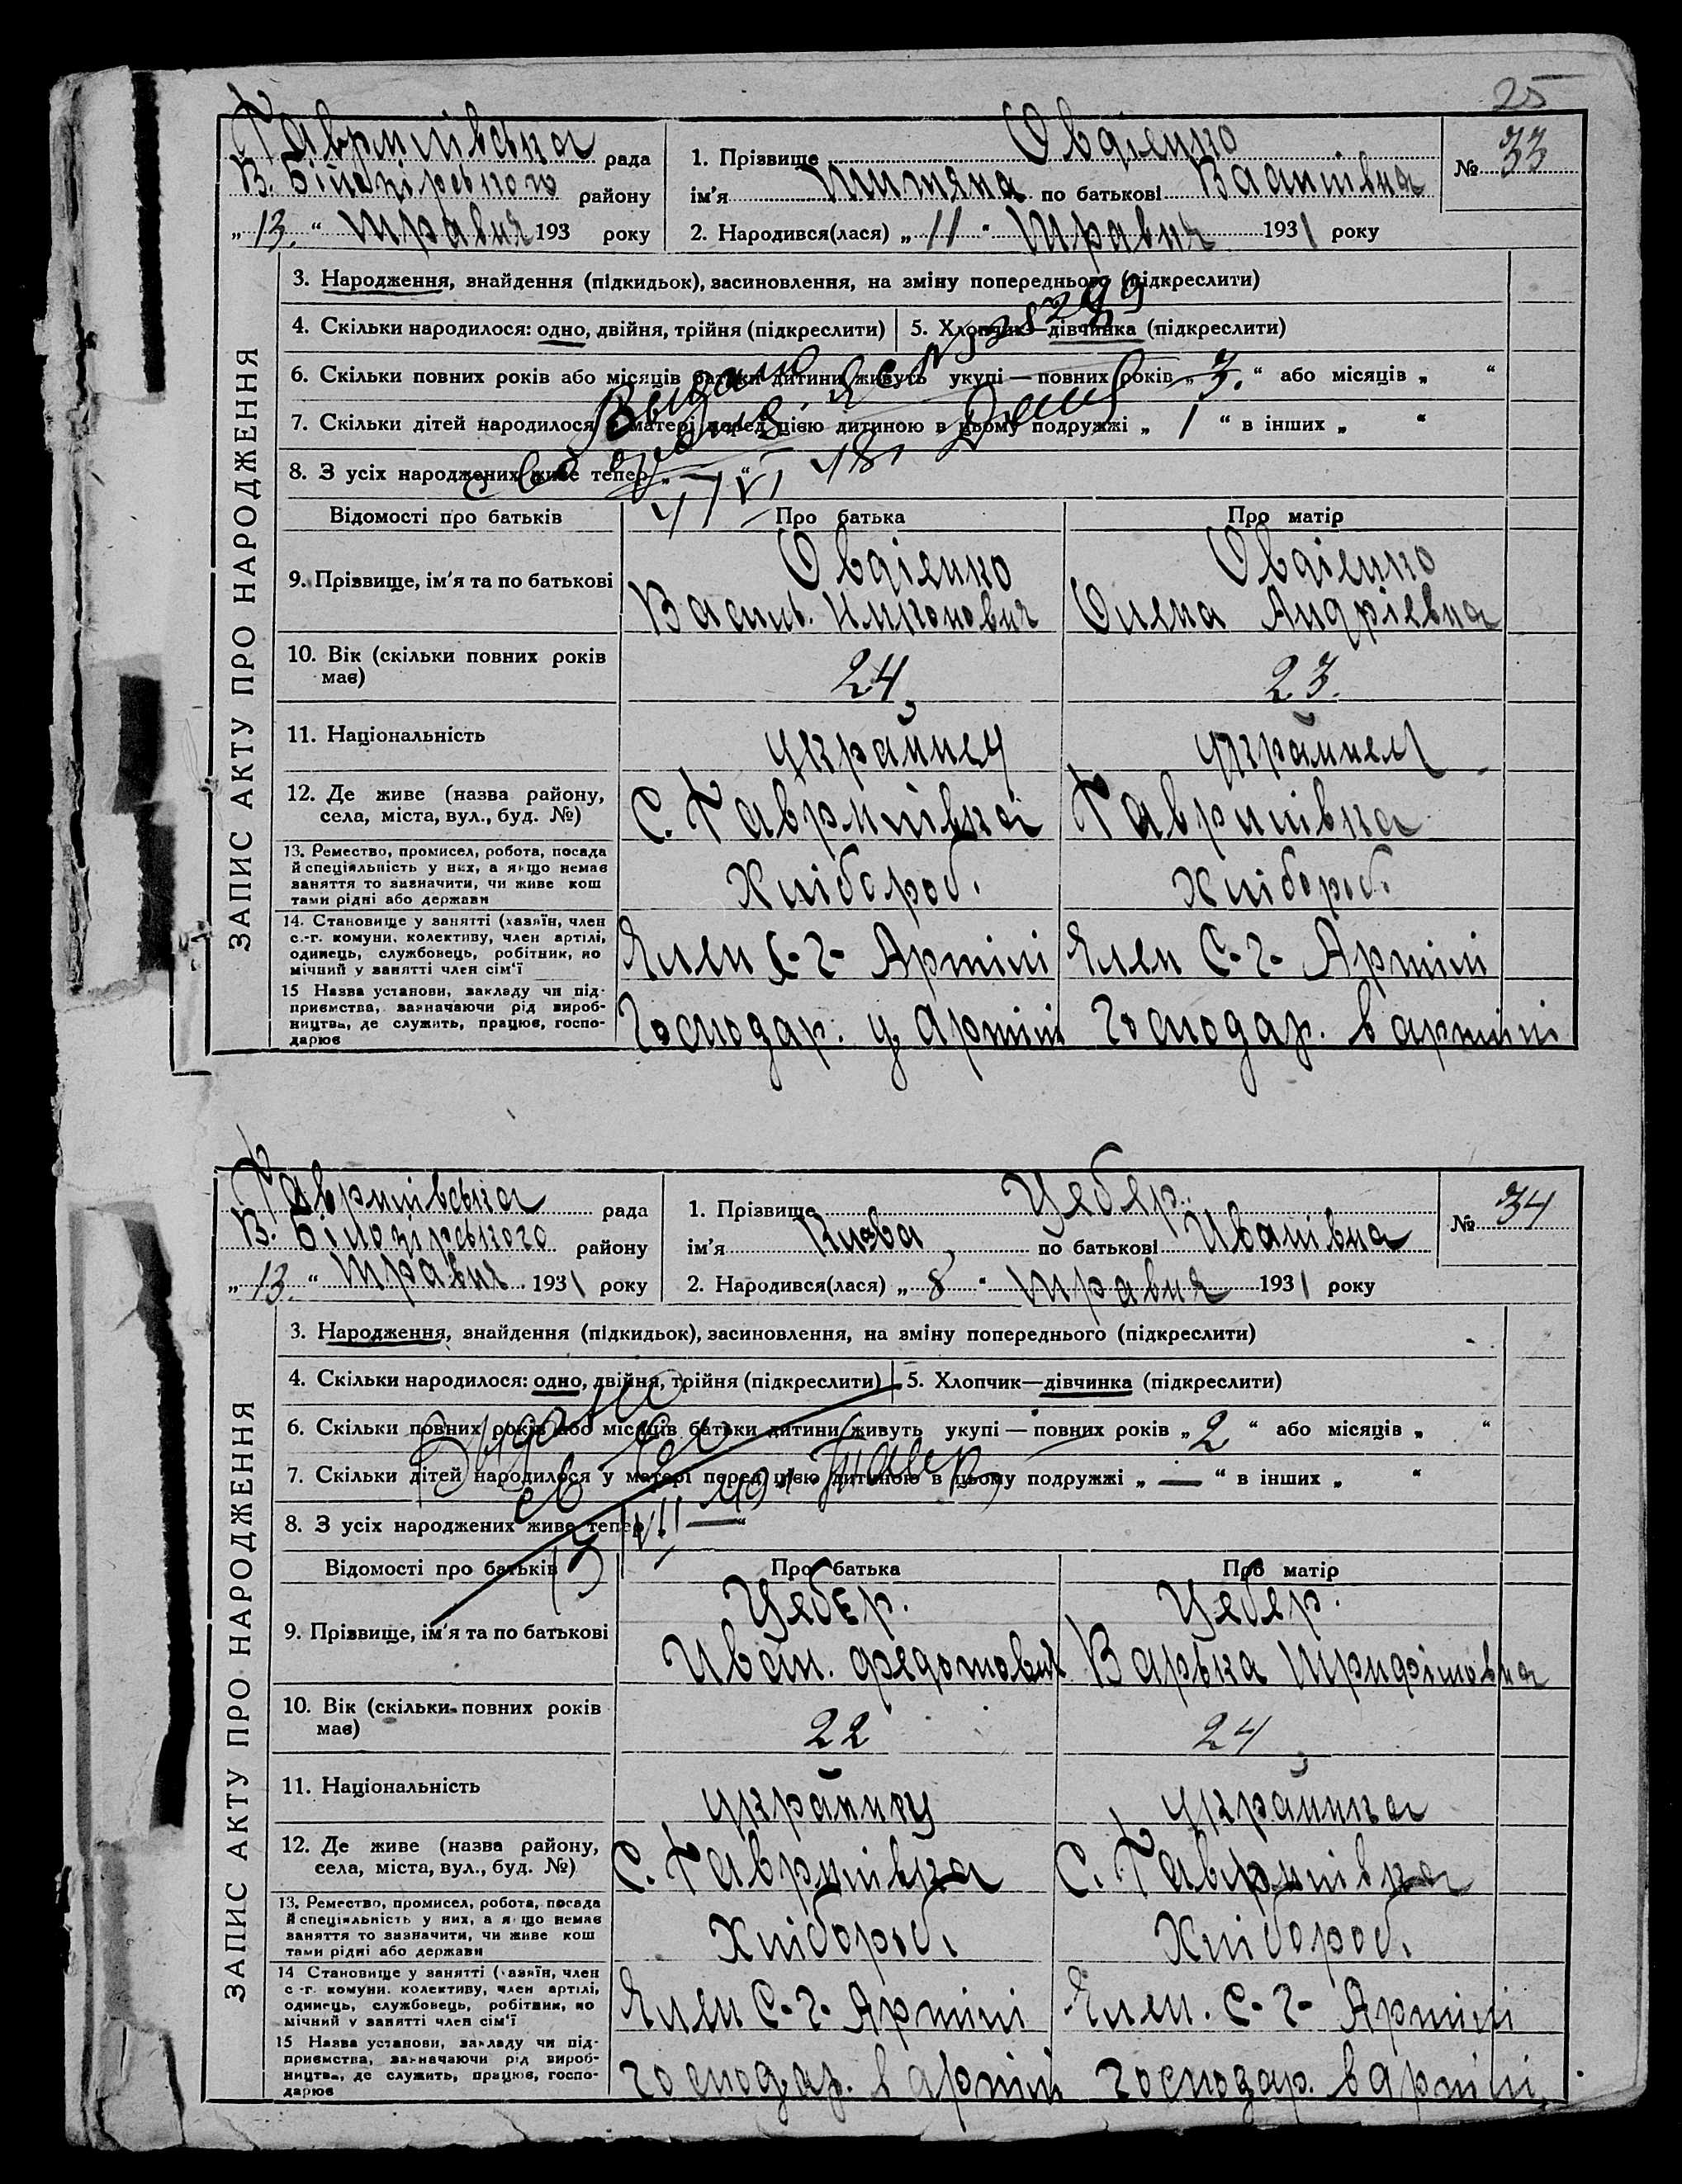 25
Гаврилівська рада
В. Білозірського району
„13.“ Травня 193 року
1. Прізвище Овдієнко
ім'я Титяна по батькові Василівна
№ 33
2. Народився(лася) „11“ Травня 1931 року
ЗАПИС АКТУ ПРО НАРОДЖЕННЯ
3. Народження, знайдення (підкидьок), засиновлення, на зміну попереднього (підкреслити)
4. Скільки народилося: одно, двійня, трійня (підкреслити)
5. Хлопчик—дівчинка (підкреслити)
6. Скільки повних років або місяців батьки дитини живуть укупі — повних років „3.“ або місяців „ “
7. Скільки дітей народилося у матері перед цією дитиною в цьому подружжі „1“ в інших „ “
8. З усіх народжених живе тепер „ “
Выдано
Відомості про батьків
Про батька
Про матір
9. Прізвище, ім'я та по батькові
Овдієнко
Василь
Овдієнко
Олена Андріевна
10. Вік (скільки повних років
має)
24
23.
11. Національність
украйнец
12. Де живе (назва району,
села, міста, вул., буд. №)
С. Гаврилівка
Гаврилівка
13. Ремество, промисел, робота, посада
й спеціяльність у них, а якщо немає
заняття то зазначити, чи живе кош
тами рідні або держави
Хлібороб.
Хлібороб.
14. Становище у занятті (хазяїн, член
с.-г. комуни, колективу, член артілі,
одинець, службовець, робітник, по
мічний у занятті член сім'ї
Член С-г- Артілі
Член С-г- Артілі
15 Назва установи, закладу чи під-
приємства, зазначаючи рід вироб-
ництва, де служить, працює, госпо-
дарює
Господар. у артілі
Господар. в артілі
Гаврилівська рада
В. Білозірського району
„13.“ Травня 1931 року
1. Прізвище Цебер.
ім'я Клава по батькові Иванівна
№ 34
2. Народився(лася) „8“ Травня 1931 року
ЗАПИС АКТУ ПРО НАРОДЖЕННЯ
3. Народження, знайдення (підкидьок), засиновлення, на зміну попереднього (підкреслити)
4. Скільки народилося: одно, двійня, трійня (підкреслити)
5. Хлопчик—дівчинка (підкреслити)
6. Скільки повних років або місяців батьки дитини живуть укупі — повних років „2“ або місяців „ “
7. Скільки дітей народилося у матері перед цією дитиною в цьому подружжі „—“ в інших „ “
8. З усіх народжених живе тепер „—“
Відомості про батьків
Про батька
Про матір
9. Прізвище, ім'я та по батькові
Цебер.
Иван. Федотович
Цебер.
Варька
10. Вік (скільки повних років
має)
22
24
11. Національність
украйнец
украйинка
12. Де живе (назва району,
села, міста, вул., буд. №)
С. Гаврилівка
С. Гаврилівка
13. Ремество, промисел, робота, посада
й спеціяльність у них, а якщо немає
заняття то зазначити, чи живе кош
тами рідні або держави
Хлібороб.
Хлібороб.
14 Становище у занятті (хазяїн, член
с-г. комуни, колективу, член артілі,
одинець, службовець, робітник, по
мічний у занятті член сім'ї
Член С-г- Артілі
Член. С-г- Артілі
15 Назва установи, закладу чи під-
приємства, зазначаючи рід вироб-
ництва, де служить, працює, госпо-
дарює
господар. в артілі
господар. в артілі